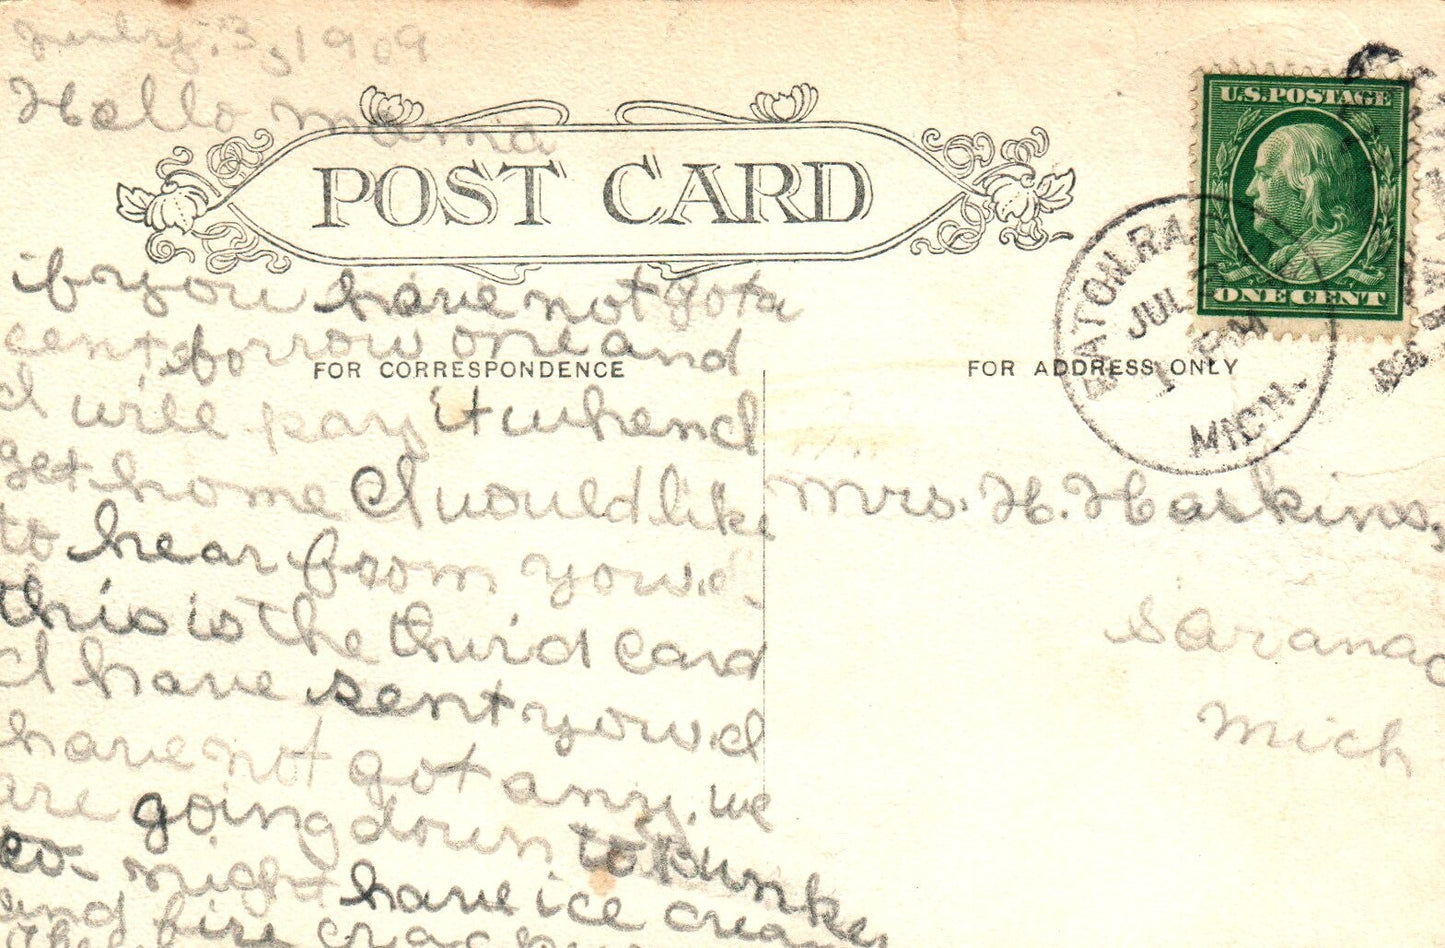 July. 3, 1909
Hello mama
POST CARD
if you have not got a
cent, borrow one and
I will pay it when I
get home I would like
to hear from you. I.
this is the third card
I have sent you. I
have not got any. we
are going down to Bunkes
to- night have ice cream
and fire crackers
FOR CORRESPONDENCE
FOR ADDRESS ONLY
U.S. POSTAGE
ONE CENT
EATON RAP
JUL
1 PM
MICH.
Mrs. H. Haskins,
Saranac
Mich